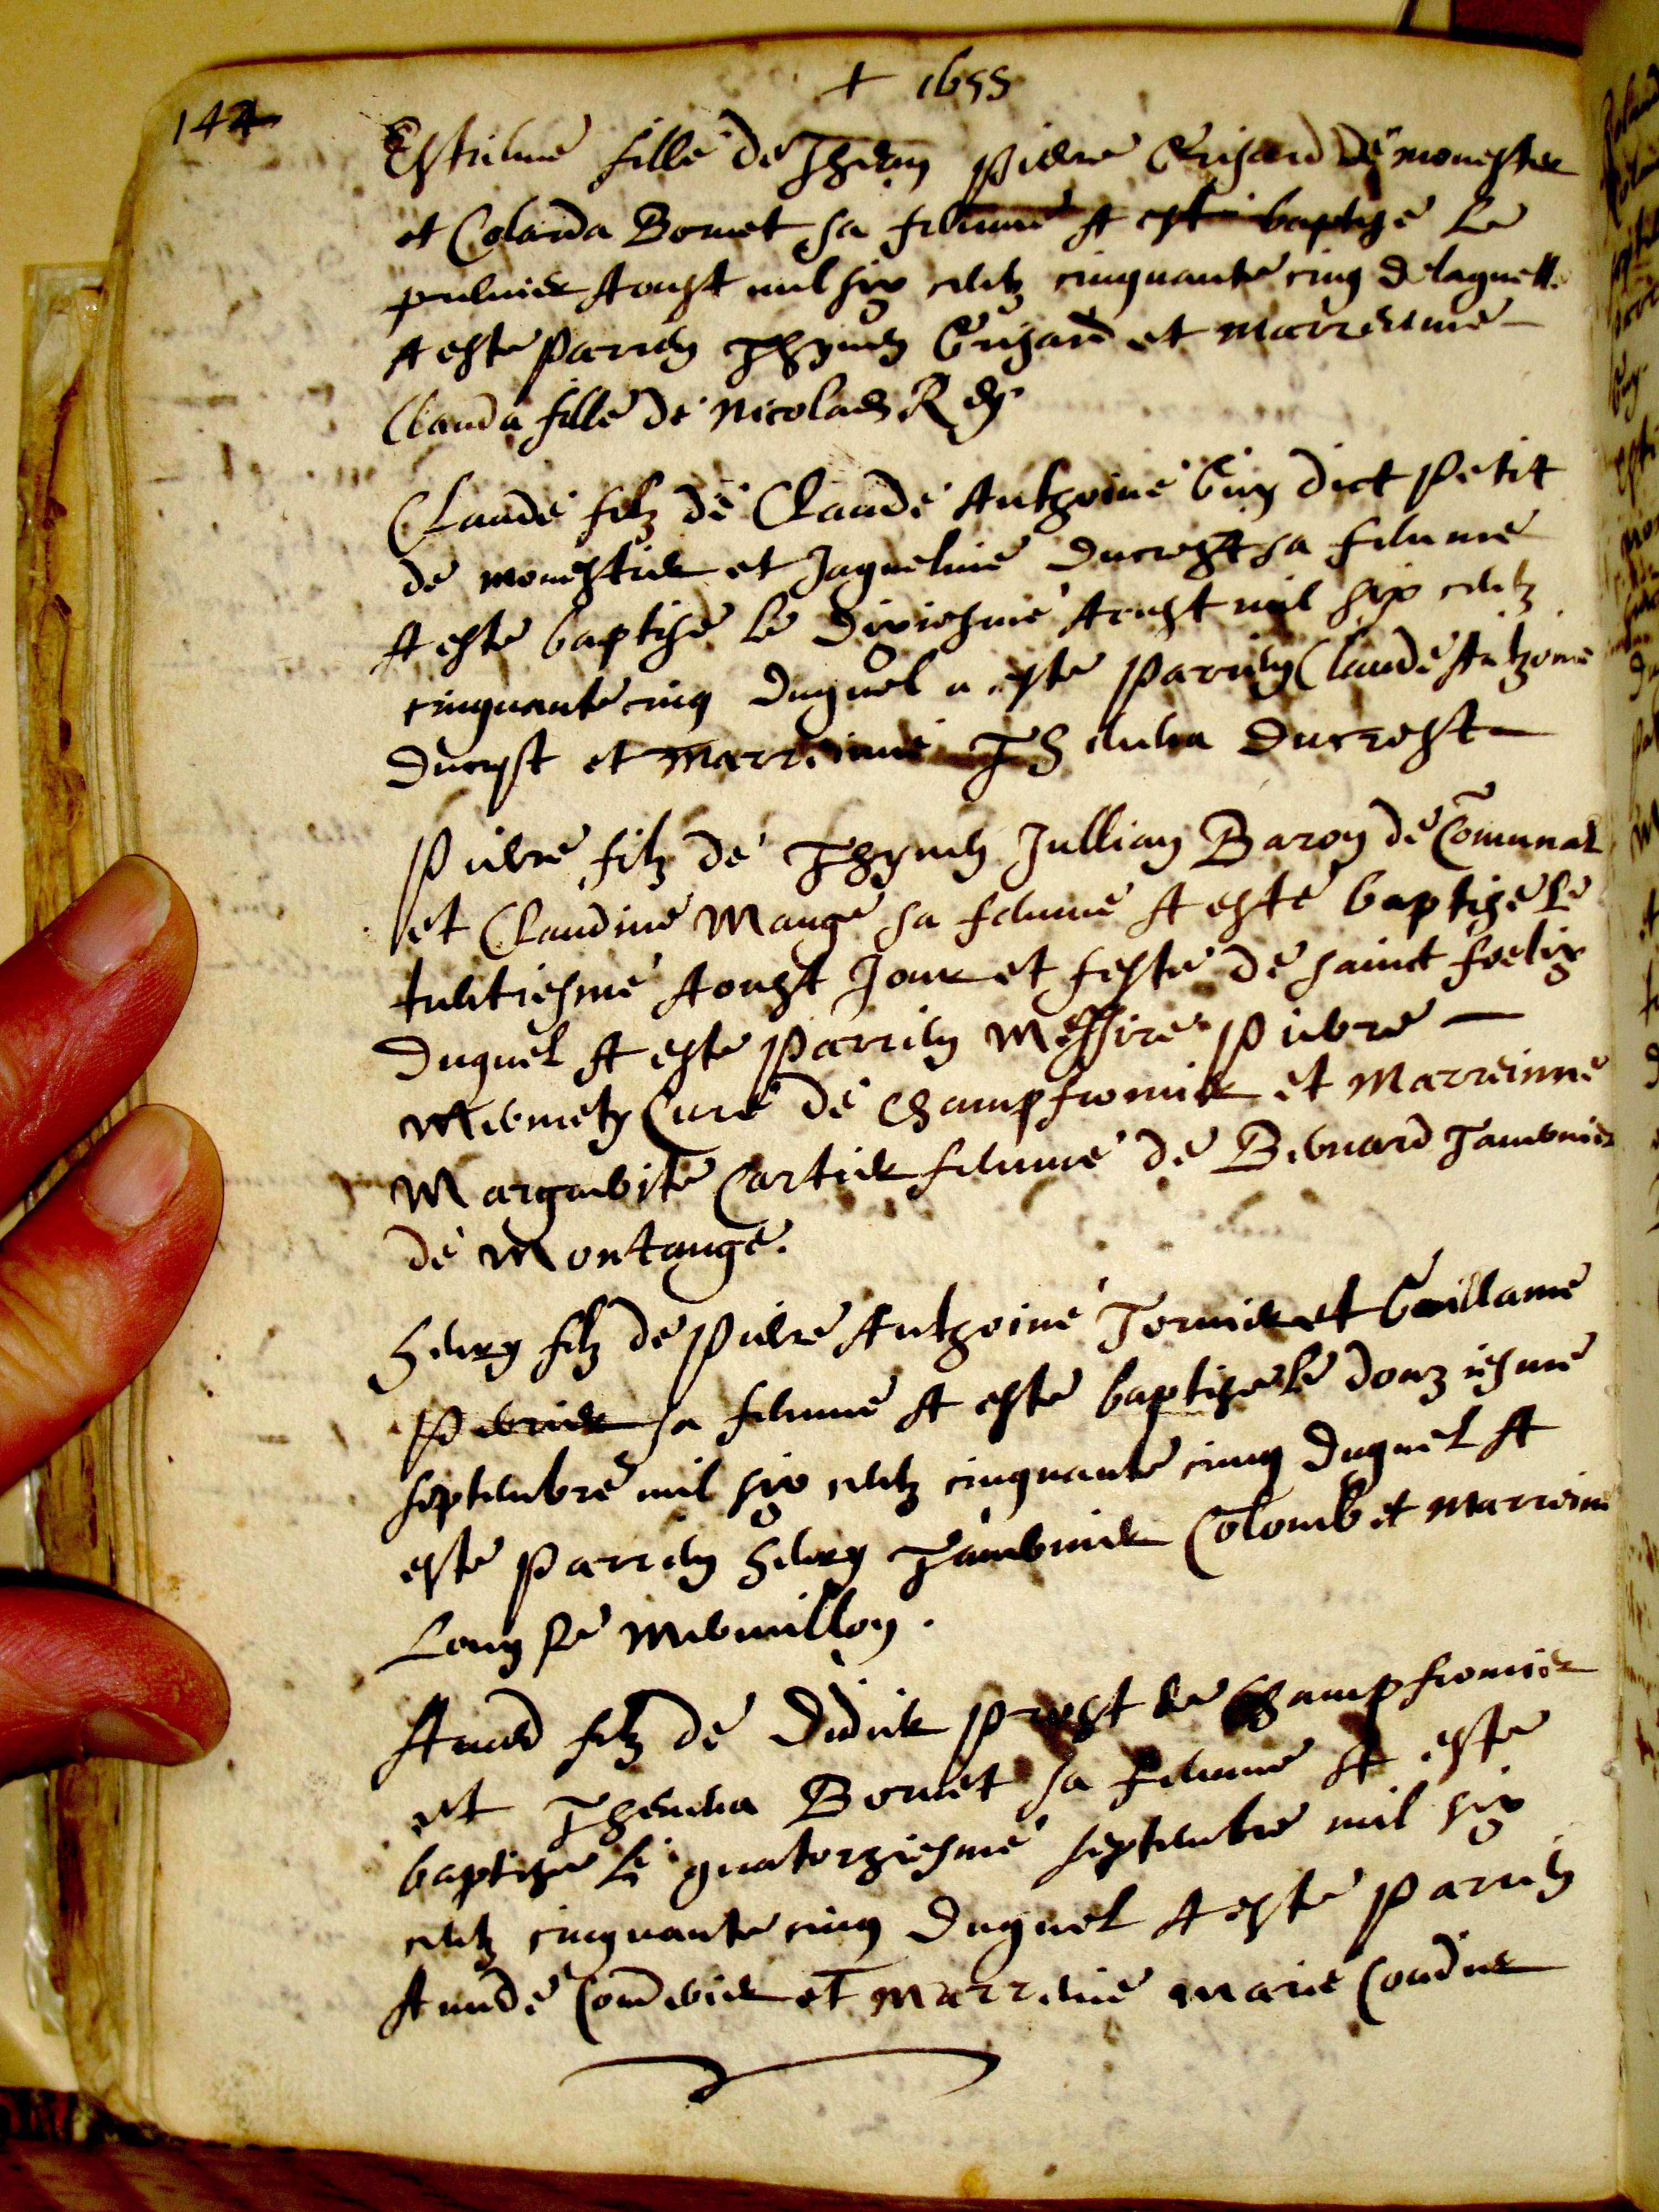 + 1655
144
Estienne fille de Thyven Pierre Grisard de monestier
et Colarda Bornet sa femme A esté baptisé Le
premier Aoust mil six centz cinquante cinq de laquelle
A este Parrein Thyvent Grisard et marrenne
Clauda fille de Nicolas Rey
Claude filz de Claude Anthoine Guy dict Petit
de monestier et Jaqueline Ducrest sa femme
A este baptise Le dixiesme Aoust mil six centz
cinquante cinq duquel a este Parrein Claude Anthoine
Ducrest et marreinne Thevena Ducrest
Pierre filz de Thyvent Jullian Baron de Communal
et Claudine Mange sa femme A esté baptise Le
trentiesme Aoust Jour et feste de sainct foelix
duquel A este Parrein Messire Pierre
Mermety Curé de Champfromier et Marreinne
Marguerite Cartier femme de Bernard Tavernier
de Montange.
Henry filz de Pierre Anthoine Tornier et Guillame
Perrier sa femme A este baptise Le douziesme
septembre mil six centz cinquante cinq duquel A
este Parrein Henry Tavernier Colomb et Marreine
Louyse Mermillon.
Amed filz de Didier Prost de Champfromier
et Thevena Bornet sa femme A este
baptise Le quatorziesme septembre mil six
centz cinquante cinq duquel A este Parrein
Amede et Marrenne marie Coudurier